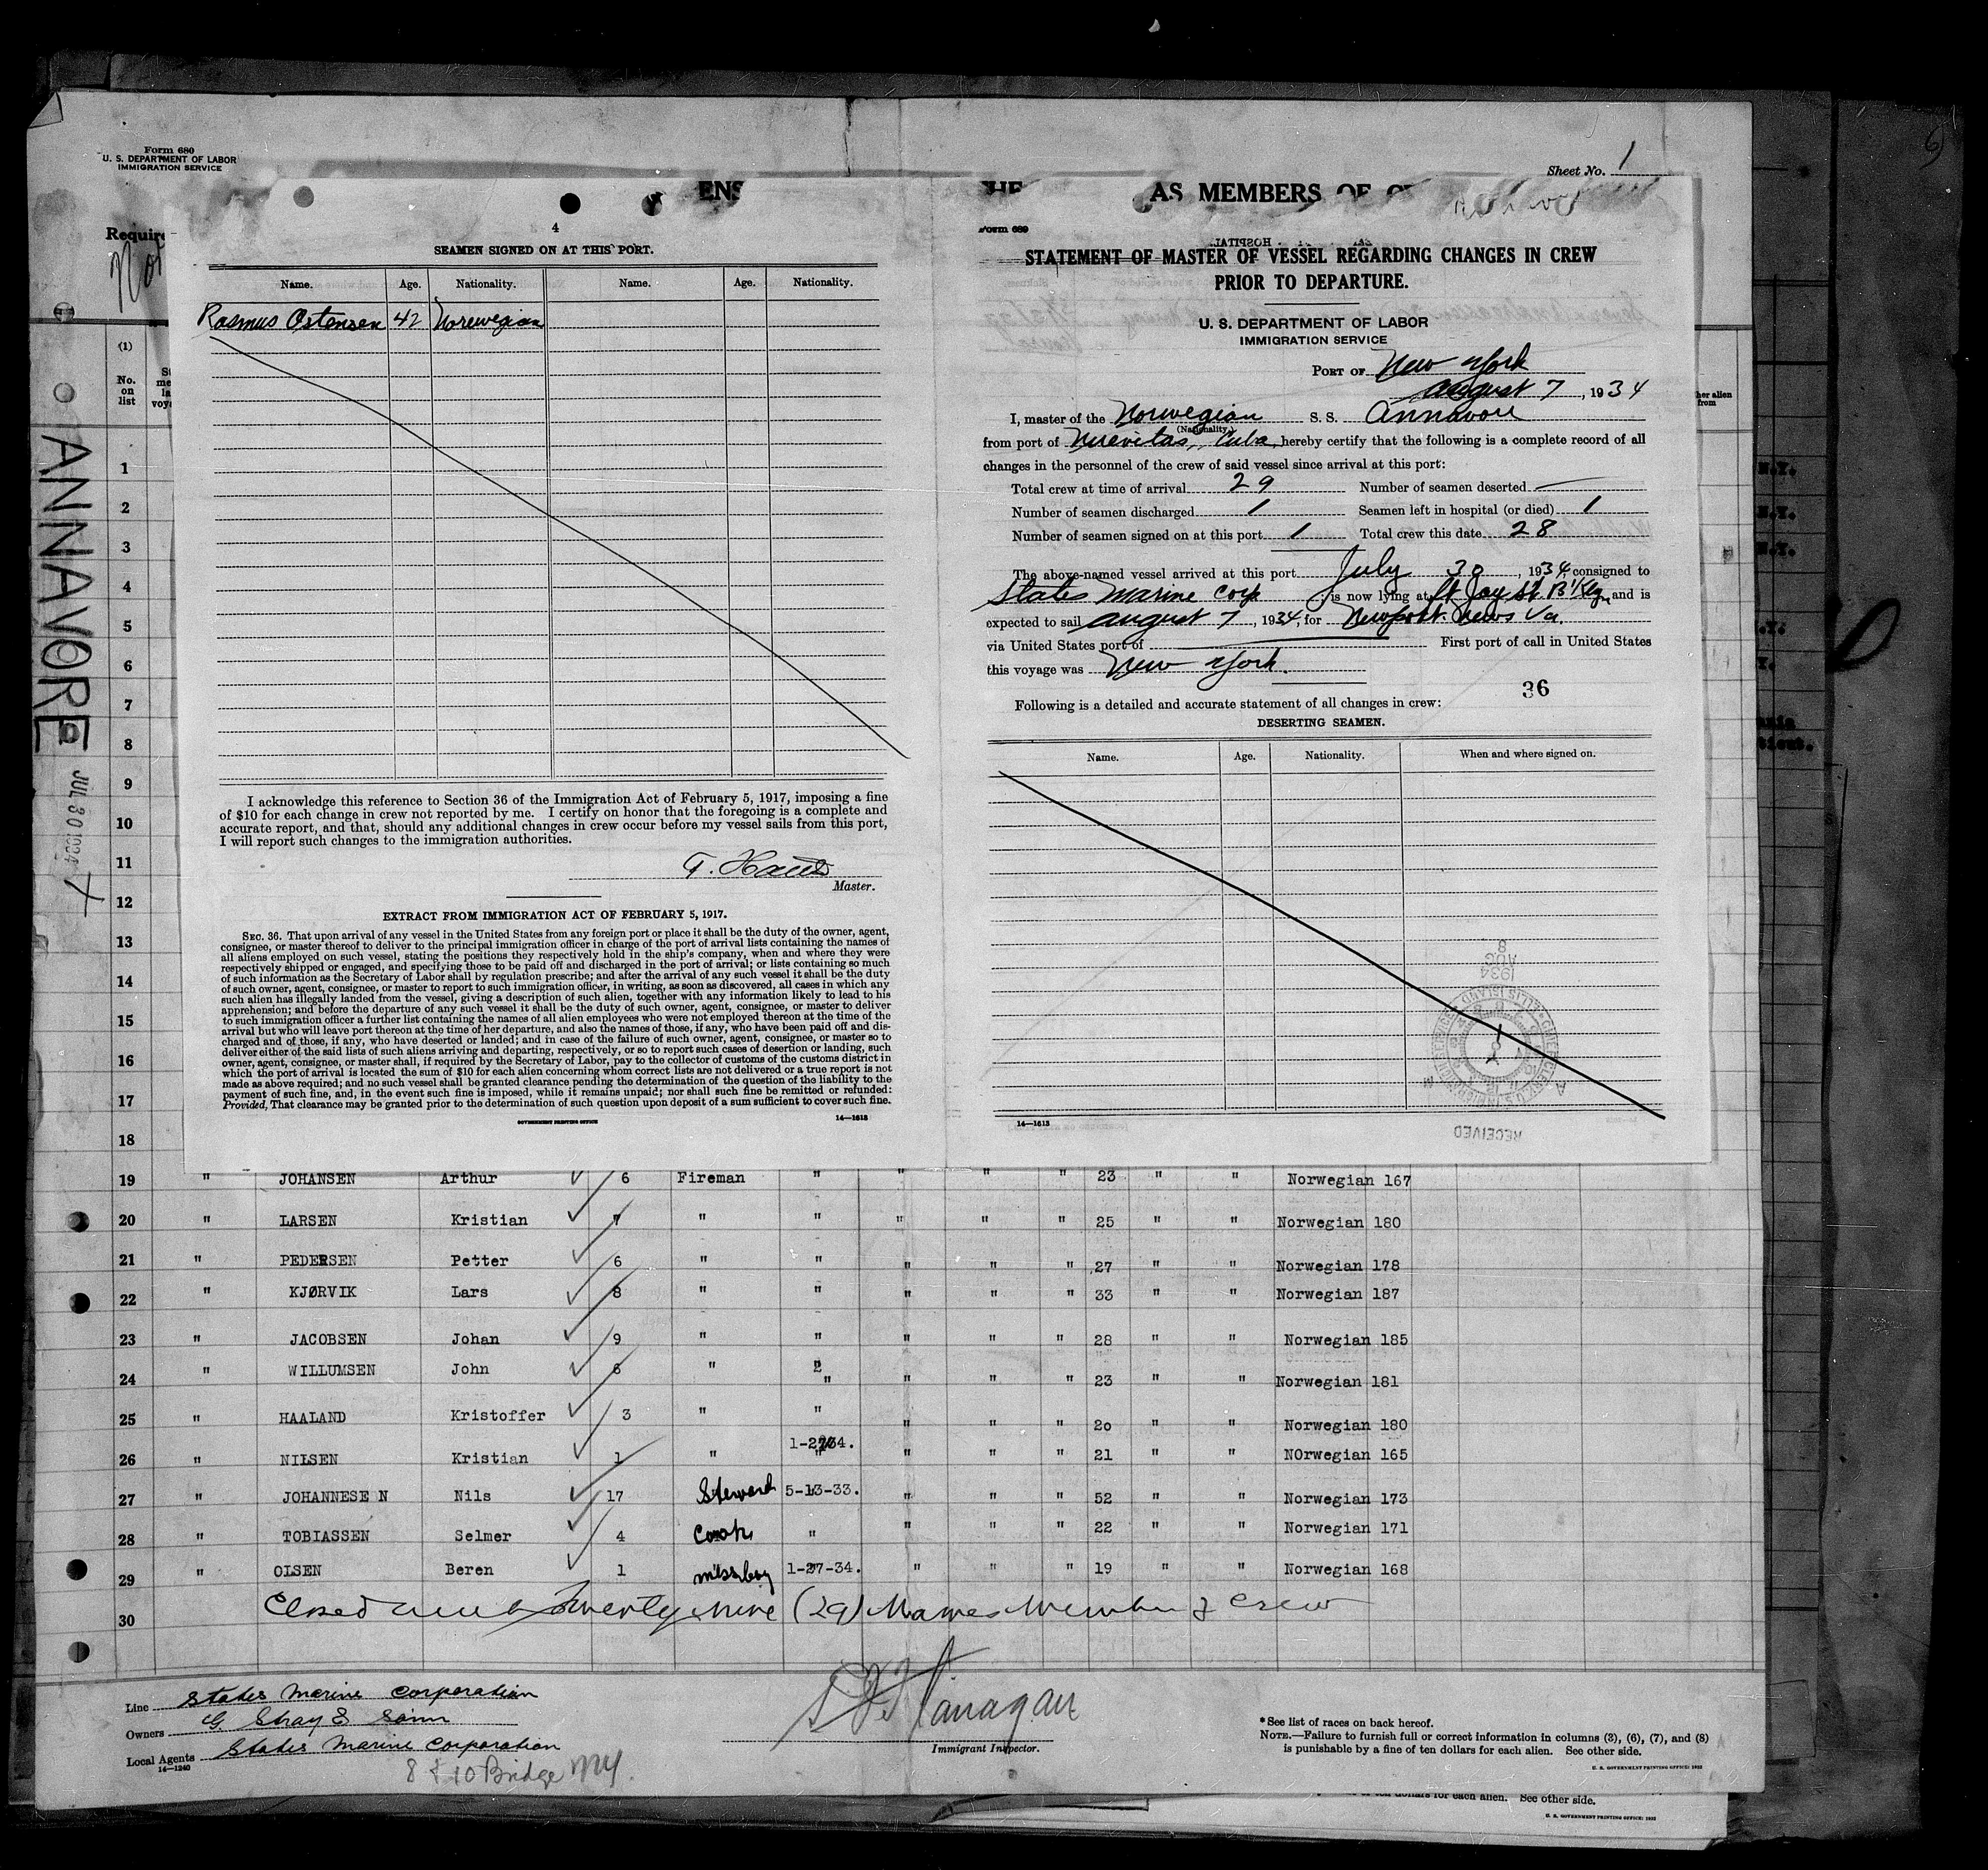 Form 680
U. S. DEPARTMENT OF LABOR
IMMIGRATION SERVICE
Sheet No. 1
ENS
AS MEMBERS OF
4
SEAMEN SIGNED ON AT THIS PORT.
Name. Age. Nationality. Name. Age. Nationality.
Rasmus Ostensen 42 Norewegian
I acknowledge this reference to Section 36 of the Immigration Act of February 5, 1917, imposing a fine
of $10 for each change in crew not reported by me. I certify on honor that the foregoing is a complete and
accurate report, and that, should any additional changes in crew occur before my vessel sails from this port,
I will report such changes to the immigration authorities.
Master.
EXTRACT FROM IMMIGRATION ACT OF FEBRUARY 5, 1917.
SEC. 36. That upon arrival of any vessel in the United States from any foreign port or place it shall be the duty of the owner, agent,
consignee, or master thereof to deliver to the principal immigration officer in charge of the port of arrival lists containing the names of
all aliens employed on such vessel, stating the positions they respectively hold in the ship's company, when and where they were
respectively shipped or engaged, and specifying those to be paid off and discharged in the port of arrival; or lists containing so much
of such information as the Secretary of Labor shall by regulation prescribe; and after the arrival of any such vessel it shall be the duty
of such owner, agent, consignee, or master to report to such immigration officer, in writing, as soon as discovered, all cases in which any
such alien has illegally landed from the vessel, giving a description of such alien, together with any information likely to lead to his
apprehension; and before the departure of any such vessel it shall be the duty of such owner, agent, consignee, or master to deliver
to such immigration officer a further list containing the names of all alien employees who were not employed thereon at the time of the
arrival but who will leave port thereon at the time of her departure, and also the names of those, if any, who have been paid off and dis-
charged and of those, if any, who have deserted or landed; and in case of the failure of such owner, agent, consignee, or master so to
deliver either of the said lists of such aliens arriving and departing, respectively, or so to report such cases of desertion or landing, such
owner, agent, consignee, or master shall, if required by the Secretary of Labor, pay to the collector of customs of the customs district in
which the port of arrival is located the sum of $10 for each alien concerning whom correct lists are not delivered or a true report is not
made as above required; and no such vessel shall be granted clearance pending the determination of the question of the liability to the
payment of such fine, and, in the event such fine is imposed, while it remains unpaid; nor shall such fine be remitted or refunded:
Provided, That clearance may be granted prior to the determination of such question upon deposit of a sum sufficient to cover such fine.
GOVERNMENT PRINTING OFFICE 14—1613
Form 689
STATEMENT OF MASTER OF VESSEL REGARDING CHANGES IN CREW
PRIOR TO DEPARTURE.
U. S. DEPARTMENT OF LABOR
IMMIGRATION SERVICE
PORT OF New York
August 7, 1934
I, master of the Norwegian S. S. Annavore
(Nationality.)
from port of Nuevitas, Cuba, hereby certify that the following is a complete record of all
changes in the personnel of the crew of said vessel since arrival at this port:
Total crew at time of arrival 29 Number of seamen deserted —
Number of seamen discharged 1 Seamen left in hospital (or died) 1
Number of seamen signed on at this port 1 Total crew this date 28
The above-named vessel arrived at this port July 30, 1934, consigned to
States Marine Corp is now lying at ft Jay St. B'klyn and is
expected to sail August 7, 1934, for Newport News Va.
via United States port of First port of call in United States
this voyage was New York.
36
Following is a detailed and accurate statement of all changes in crew:
DESERTING SEAMEN.
Name. Age. Nationality. When and where signed on.
1934
AUG
8
RECEIVED
14—1613
ANNAVORE
JUL 30 1934
(1)
No.
on
list
1
2
3
4
5
6
7
8
9
10
11
12
13
14
15
16
17
18
19 " JOHANSEN Arthur 6 Fireman " " " " 23 " " Norwegian 167
20 " LARSEN Kristian 7 " " " " " 25 " " Norwegian 180
21 " PEDERSEN Petter 6 " " " " " 27 " " Norwegian 178
22 " KJØRVIK Lars 8 " " " " " 33 " " Norwegian 187
23 " JACOBSEN Johan 9 " " " " " 28 " " Norwegian 185
24 " WILLUMSEN John 6 " " " " " 23 " " Norwegian 181
25 " HAALAND Kristoffer 3 " " " " " 20 " " Norwegian 180
26 " NILSEN Kristian 1 " " " " 21 " " NOrwegian 165
27 " JOHANNESE N Nils 17 Steward 5-13-33. " " " 52 " " Norwegian 173
28 " TOBIASSEN Selmer 4 Cook " " " " 22 " " Norwegian 171
29 " OLSEN Beren 1 messboy 1-27-34. " " " 19 " " Norwegian 168
30 Closed with Twenty Nine (29) Names Member of Crew
Line States Marine Corporation
Owners
Local Agents States Marine Corporation
14—1240
8 & 10 Bridge NY.
Flanagan
Immigrant Inspector.
*See list of races on back hereof.
NOTE.—Failure to furnish full or correct information in columns (3), (6), (7), and (8)
is punishable by a fine of ten dollars for each alien. See other side.
U. S. GOVERNMENT PRINTING OFFICE: 1932
of ten dollars for each alien. See other side.
U. S. GOVERNMENT PRINTING OFFICE: 1932